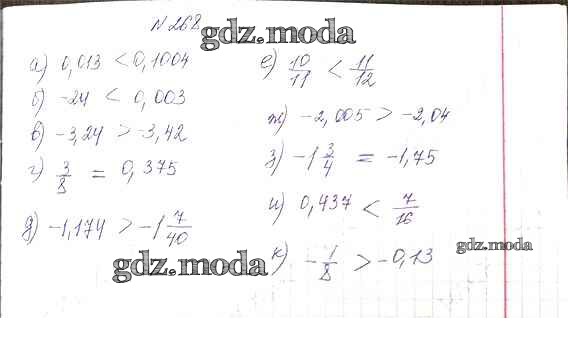 N 268
gdz.moda
а) 0,013 < 0,1004
б) -24 < 0,003
в) -3,24 > -3,42
г) 3/8 = 0,375
д) -1,174 > -1 7/40
е) 10/11 < 11/12
ж) -2,005 > -2,04
з) -1 3/4 = -1,75
и) 0,437 < 7/16
к) -1/8 > -0,13
gdz.moda
gdz.moda